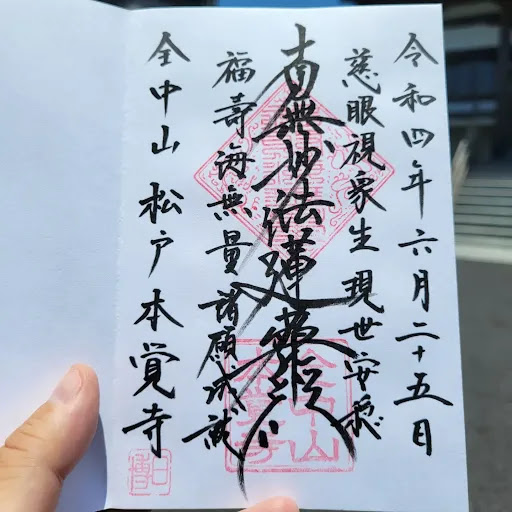 令和四年六月二十五日
慈眼視衆生 現世安穏
南無妙法蓮華經
福壽海無量 諸願成就
全中山 松戸 本覺寺
全中山
本覺寺